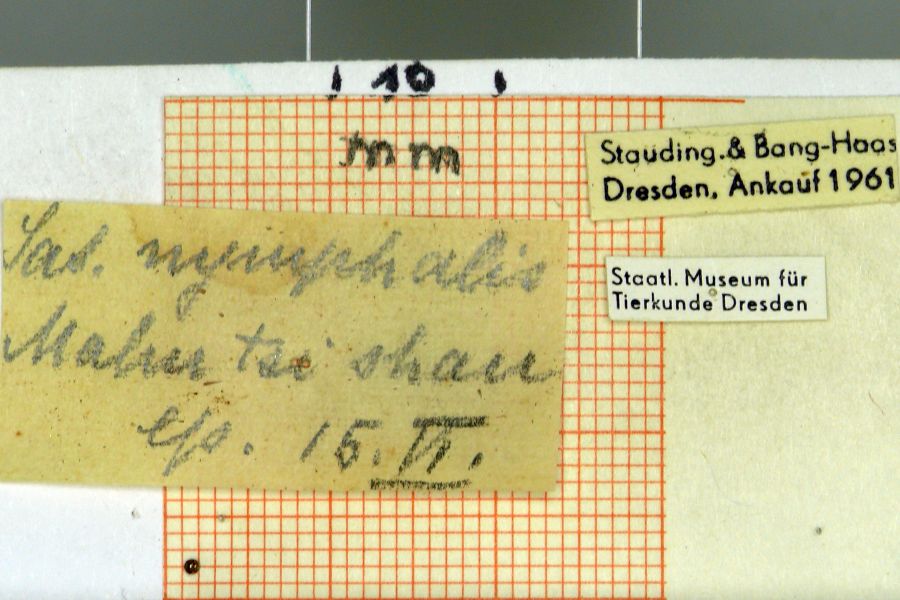 10
mm
Stauding. & Bang-Haas
Dresden. Ankauf 1961
Staatl. Museum für
Tierkunde Dresden
Sat. nymphalis
tsi shan
ep. 15. VI.